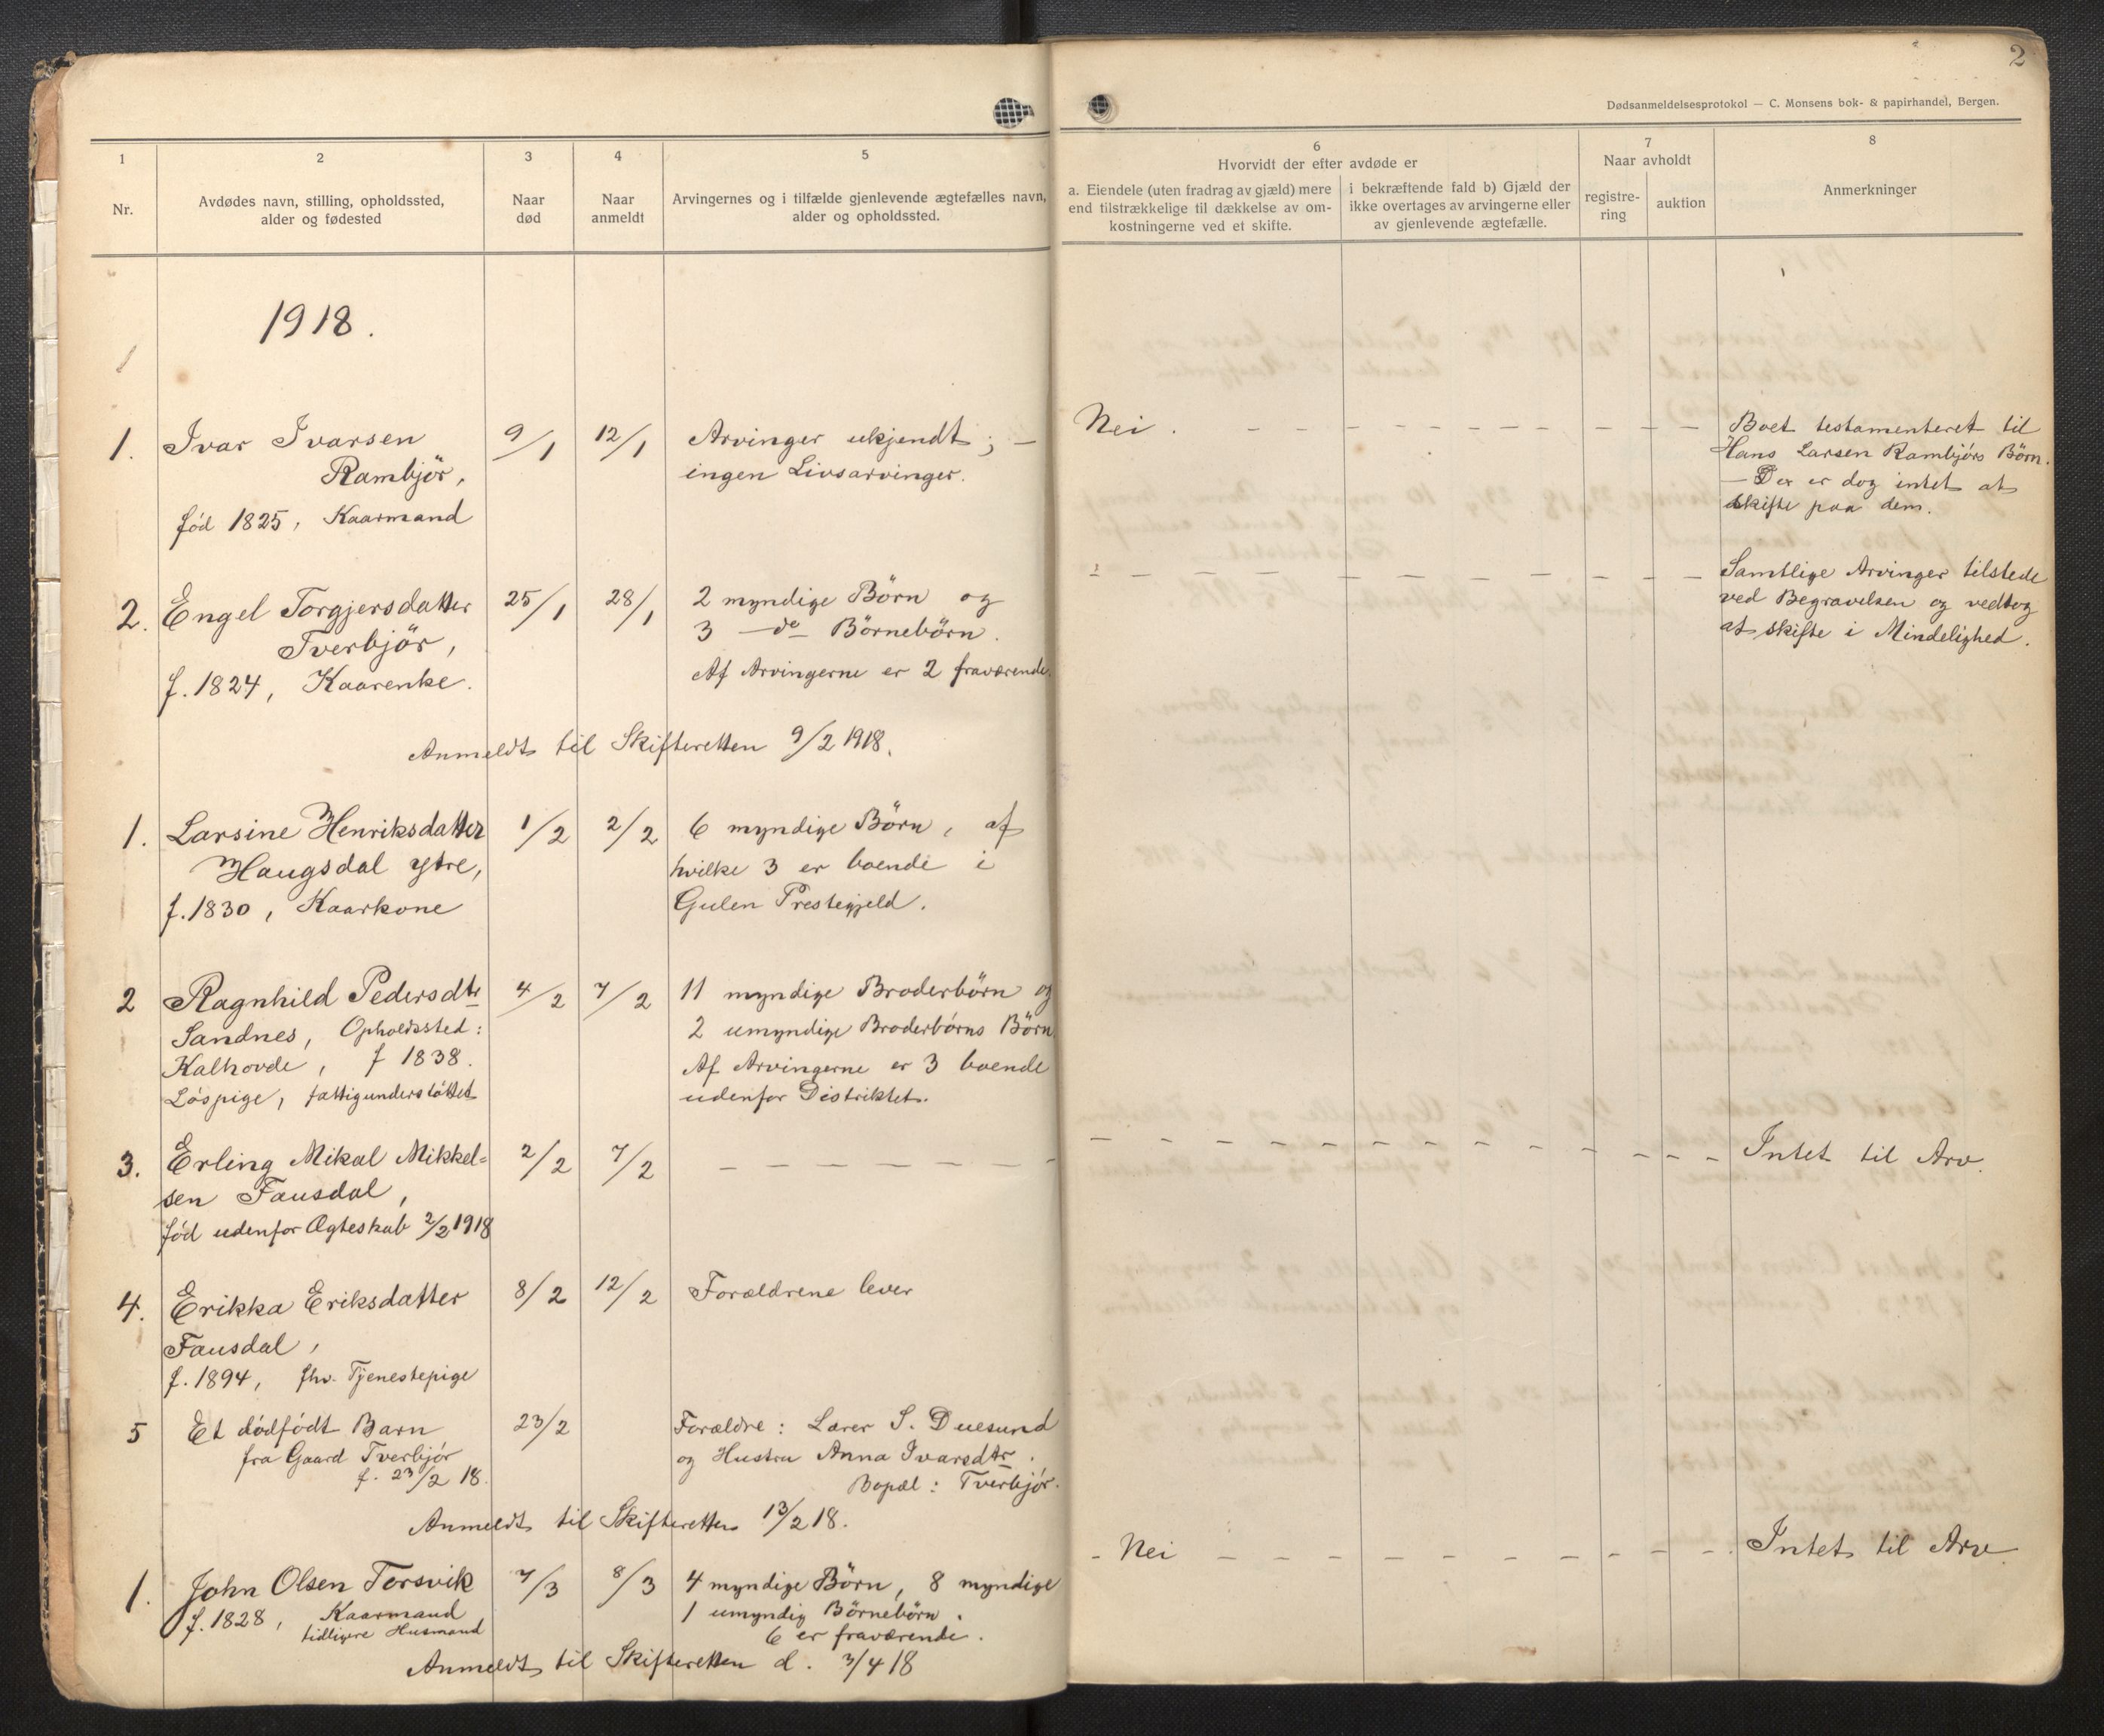 2
Dødsanmeldelsesprotokol — C. Monsens bok- & papirhandel, Bergen.
1
2
3
4
5
6
7
8
Nr.
Avdødes navn, stilling, opholdssted,
alder og fødested
Naar
død
Naar
anmeldt
Arvingernes og i tilfælde gjenlevende ægtefælles navn,
alder og opholdssted.
Hvorvidt der efter avdøde er
a. Eiendele (uten fradrag av gjæld) mere
end tilstrækkelige til dækkelse av om-
kostningerne ved et skifte.
i bekræftende fald b) Gjæld der
ikke overtages av arvingerne eller
av gjenlevende ægtefælle.
Naar avholdt
registre-
ring
auktion
Anmerkninger
1918.
1. Ivar Ivarsen
Rambjör,
fód 1825, Kaarmand
9/1 12/1
Arvinger ukjendt; —
ingen Livsarvinger.
Nei.
Boet testamenteret til
Hans Larsen Rambjórs Börn.
— Der er dog intet at
skifte paa dem.
2. Engel Torgjersdatter
Tverbjör,
f. 1824, Kaarenke.
25/1 28/1
2 myndige Börn og
3 —do— Börnebörn.
Af Arvingerne er 2 fraværende.
Samtlige Arvinger tilstede
ved Begravelsen og vedtog
at skifte i Mindelighed.
Anmeldt til Skifteretten 9/2 1918.
1. Larsine Henriksdatter
Haugsdal ytre,
f. 1830, Kaarkone
1/2 2/2
6 myndige Börn, af
hvilke 3 er boende i
Gulen Prestegjeld.
2 Ragnhild Pedersdtr
Sandnes, Opholdssted:
Kalhovde, f 1838.
Lóspige, fattigunderstöttet
4/2 7/2
11 myndige Broderbörn og
2 umyndige Broderbórns Börn
Af Arvingerne er 3 boende
udenfor Distriktet.
3. Erling Mikal Mikkel=
sen Fausdal,
fód udenfor Ægteskab 2/2 1918
2/2 7/2
— — — — — — —
Intet til Arv.
4. Erikka Eriksdatter
Fausdal,
f. 1894, fhv. Tjenestepige
8/2 12/2
Forældrene lever
5 Et dödfödt Barn
fra Gaard Tverbjór
f. 23/2 18.
23/2
Forældre: Lærer S. Duesund
og Hustru Anna Ivarsdtr.
Bopæl: Tverbjór.
Anmeldt til Skifteretten 13/2 18.
1. John Olsen Torsvik
f. 1828, Kaarmand
tidligere Husmand
7/3 8/3
4 myndige Börn, 8 myndige
1 umyndig Börnebörn.
6 er fraværende.
- Nei
Intet til Arv
Anmeldt til Skifteretten d. 3/4 18